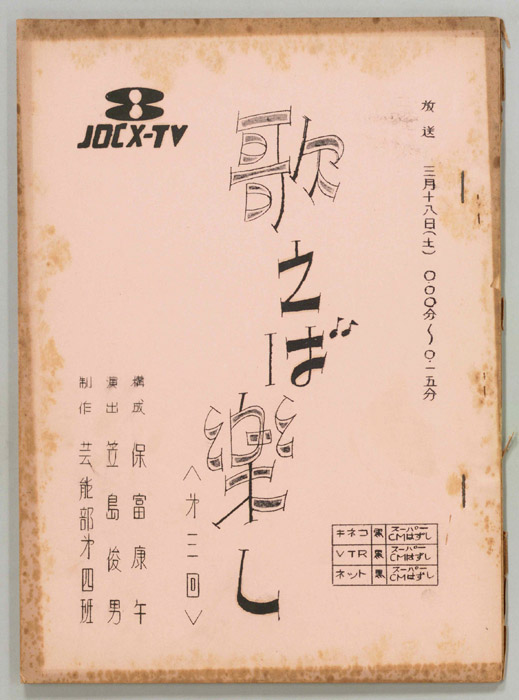 放送 三月十八日(土) 0.00分〜0.一五分
JOCX-TV
歌えば楽し
<才三回>
構成 保富康午
演出 笠島俊男
制作 芸能部才四班
キネコ 黒 スーパー CMはずし
VTR 黒 スーパー CMはずし
ネット 黒 スーパー CMはずし